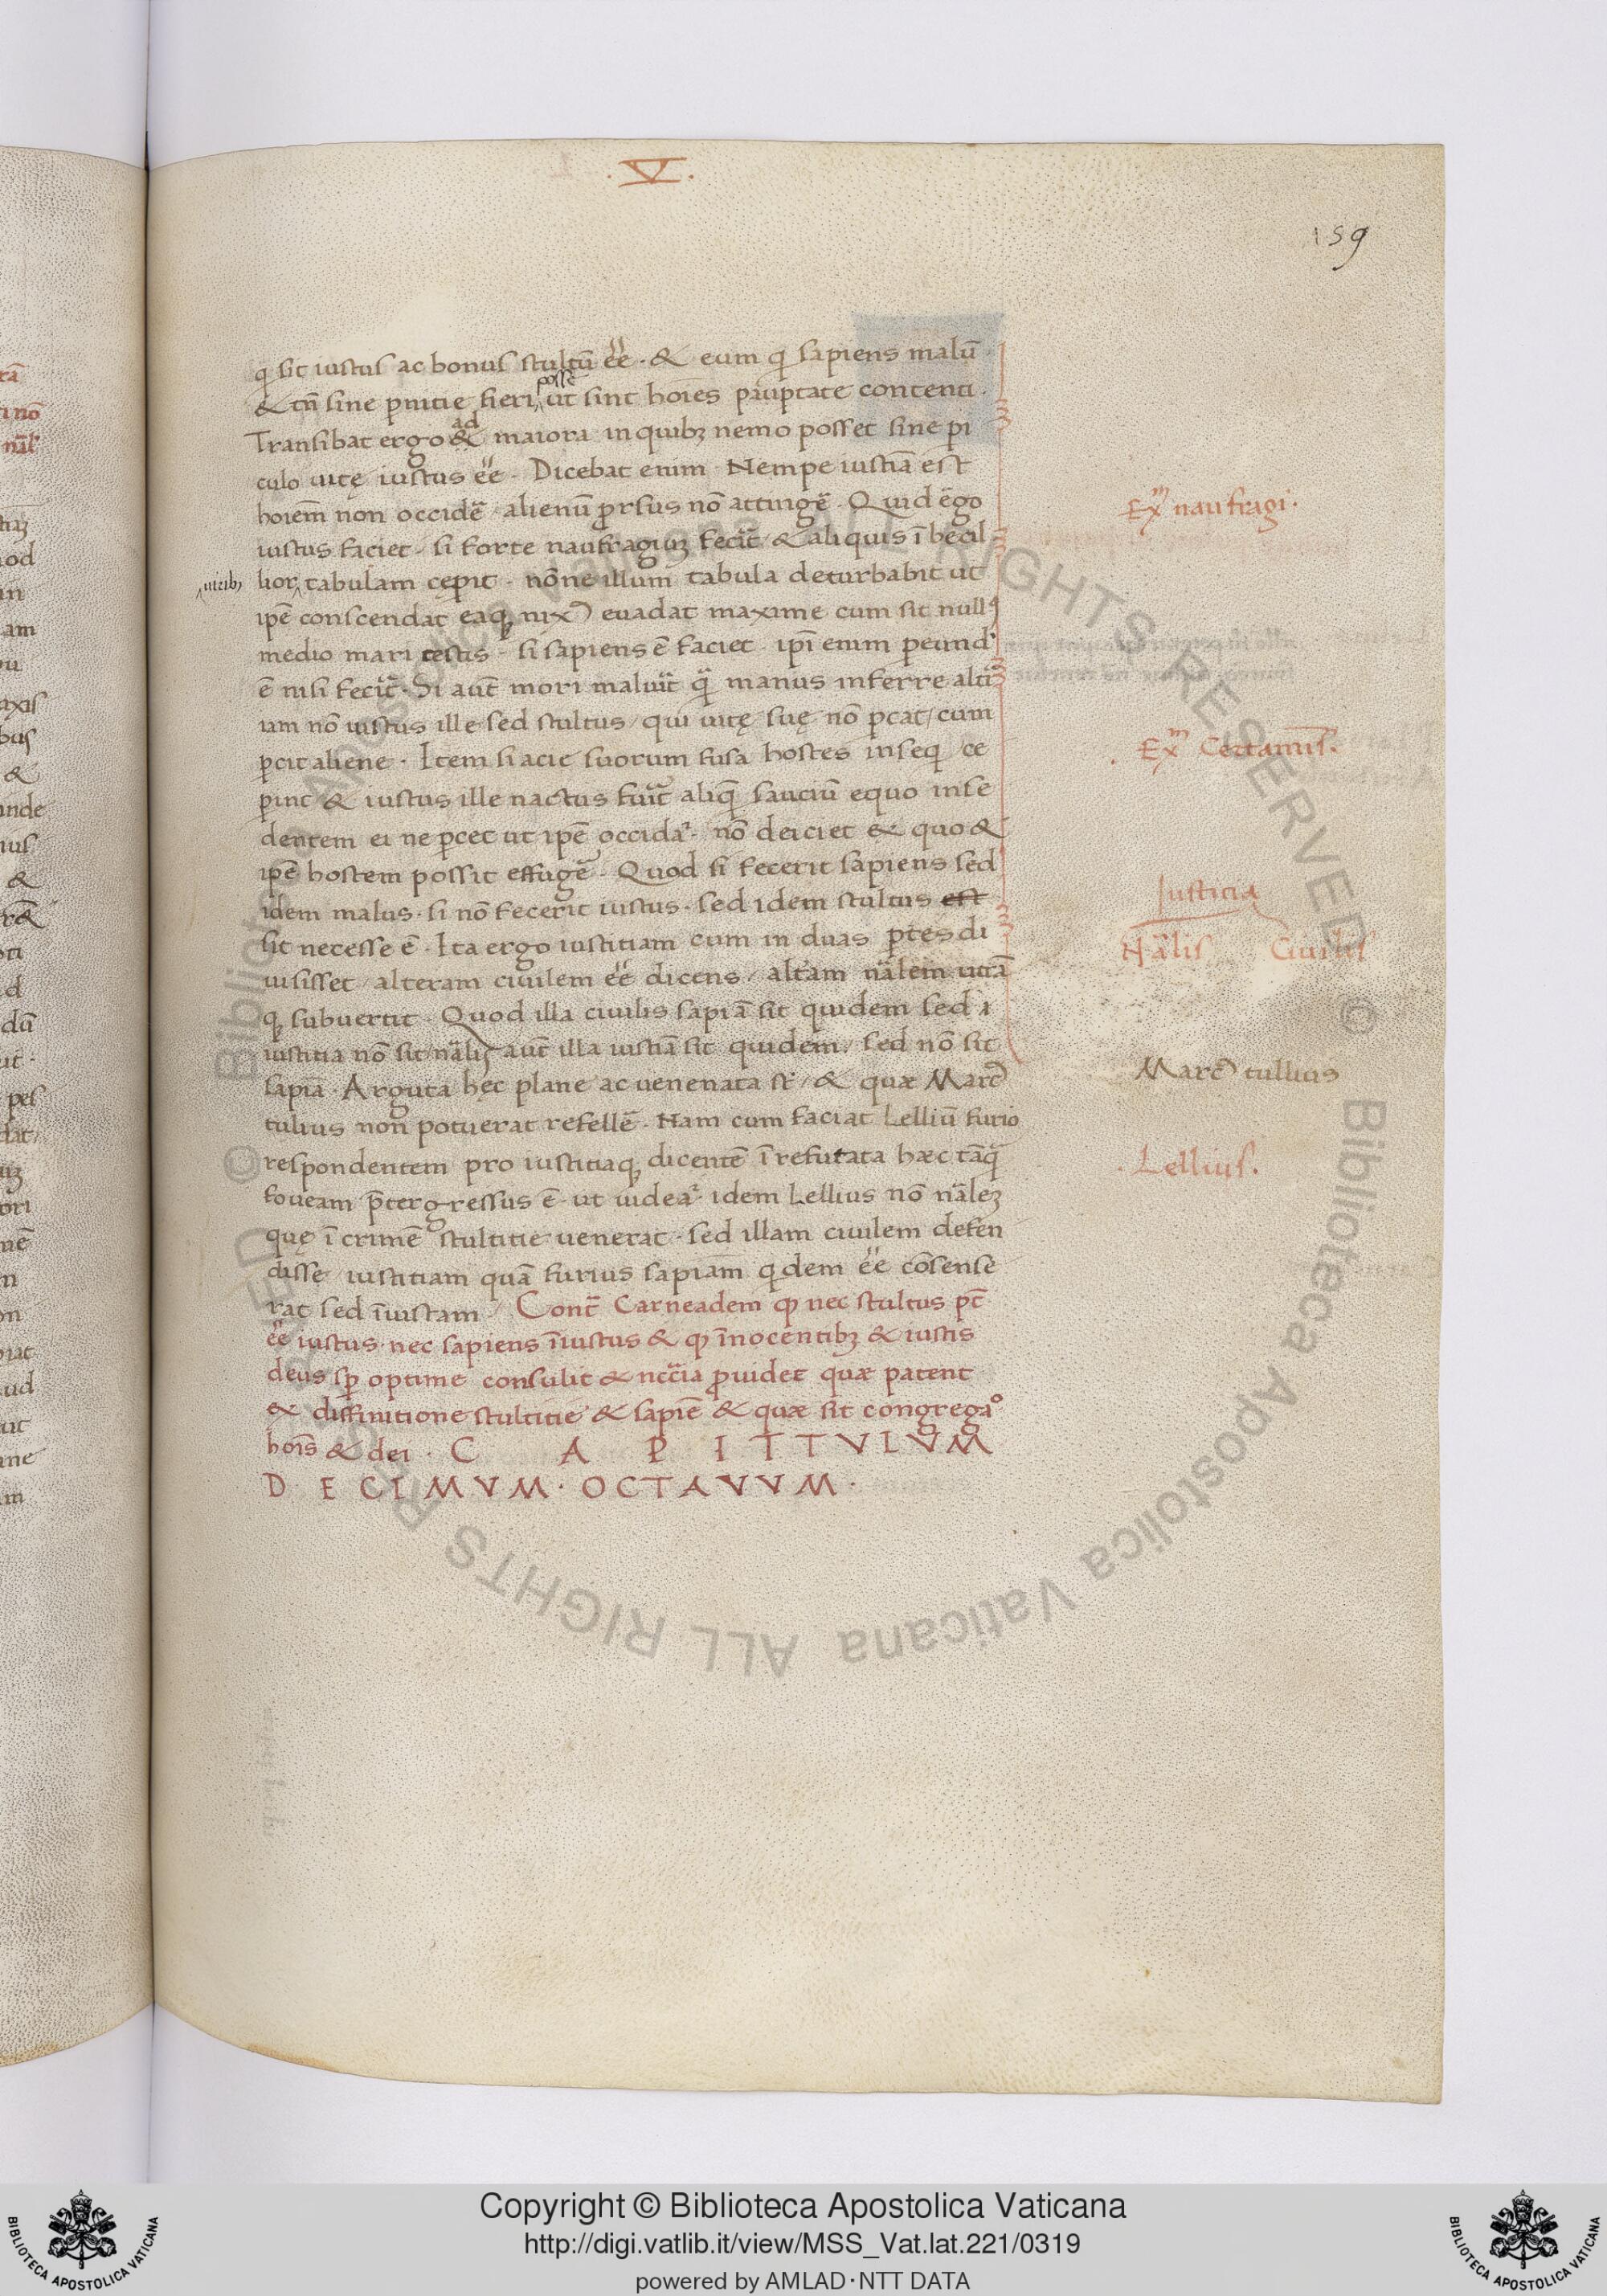 .V.
159
q sit iustus ac bonus stultū ēē · & eum q sapiens malū
& tn̄ sine pnitie fieri posse ut sint hoīes pauptate contenti ·
Transibat ergo ad & maiora in quibꝫ nemo posset sine pi
culo uitę iustus ēē · Dicebat enim · Nempe iustiā est
hoiem̄ non occidē / alienū prsus nō attingē · Quid ego
iustus faciet · si forte naufragiuꝫ fecit / & aliquis ībecil
uiribꝫ
lior tabulam cępit · nōne illum tabula deturbabit ut
ipē conscendat eaqꝫ nixꝰ euadat maxime cum sit nullꝰ
medio mari testis · si sapiens ē faciet · ipī enim peund
ē nisi fecit · Si aut̄ mori maluit q̄ manus inferre alti
iam nō iustus ille sed stultus / qui uitę suę nō pcat / cum
pcit aliene · Item si acie suorum fusa hostes inseq ce
pint & iustus ille nactus fuit aliq̄ sauciū equo inse
dentem ei ne pcet ut ipē occida · nō deiciet ex quo &
ipē hostem possit effugē · Quod si fecerit sapiens sed
idem malus · si nō fecerit iustus · sed idem stultus est
sit necesse ē · Ita ergo iustitiam cum in duas ptes di
uisisset / alteram ciuilem ēē dicens / altam nālem utrā
qꝫ subuertit · Quod illa ciuilis sapiā sit quidem sed i
iustitia nō sit / nālis aut̄ illa iustiā sit quidem / sed nō sit
sapiā · Arguta hęc plane ac uenenata st̄ / & quæ Marcꝰ
tulius non potuerat refellē · Nam cum faciat Lelliū furio
respondentem pro iustitiaqꝫ dicentē īrefutata hæc tāq
foueam p̄tergressus ē · ut uidea · idem Lellius nō nāleꝫ
quę ī crimē stultitie uenerat · sed illam ciuilem defen
disse iustitiam quā furius sapiam̄ qdem ēē cōsense
rat sed īiustam / Cont̄ Carneadem ꝙ nec stultus pt̄
ēē iustus · nec sapiens īiustus & ꝙ īnocentibꝫ & iustis
deus sp optime consulit & nccīa prouidet quæ patent
ex diffinitione stultitie & sapiē & quæ sit congregaº
hoīs & dei · C A P I T T V L V M
D E C I M V M · O C T A V V M ·
Exm naufragi ·
· Exm Certaminis ·
Iusticia
Nālis Ciuilis
Marcꝰ tullius
· Lellius ·
Copyright © Biblioteca Apostolica Vaticana
http://digi.vatlib.it/view/MSS_Vat.lat.221/0319
powered by AMLAD·NTT DATA
BIBLIOTECA APOSTOLICA VATICANA
BIBLIOTECA APOSTOLICA VATICANA
© Biblioteca Apostolica Vaticana ALL RIGHTS RESERVED
© Biblioteca Apostolica Vaticana ALL RIGHTS RESERVED